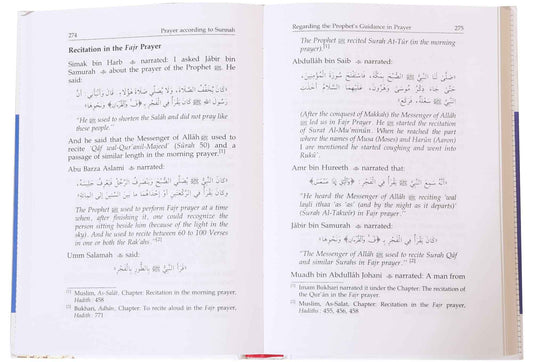 274
Prayer according to Sunnah
Recitation in the Fajr Prayer
Simak bin Harb narrated: I asked Jâbir bin
Samurah about the prayer of the Prophet ﷺ. He
said:
«كَانَ يُخَفِّفُ الصَّلَاةَ، وَلَا يُصَلِّي صَلَاةَ هَؤُلَاءِ. قَالَ وَأَنْبَأَنِي: أَنَّ
رَسُولَ اللهِ ﷺ كَانَ يَقْرَأُ فِي الْفَجْرِ بِـ ﴿ق وَالْقُرْآنِ﴾ وَنَحْوِهَا»
"He used to shorten the Salâh and did not pray like
these people."
And he said that the Messenger of Allâh ﷺ used to
recite 'Qâf wal-Qur'anil-Majeed' (Sûrah 50) and a
passage of similar length in the morning prayer.[1]
Abu Barza Aslami narrated:
«كَانَ النَّبِيُّ ﷺ يُصَلِّي الصُّبْحَ وَيَنْصَرِفُ الرَّجُلُ فَيَعْرِفُ جَلِيسَهُ،
وَكَانَ يَقْرَأُ فِي الرَّكْعَتَيْنِ أَوْ إِحْدَاهُمَا مَا بَيْنَ السِّتِّينَ إِلَى الْمِائَةِ»
The Prophet ﷺ used to perform Fajr prayer at a time
when, after finishing it, one could recognize the
person sitting beside him (because of the light in the
sky). And he used to recite between 60 to 100 Verses
in one or both the Rak'ahs."[2]
Umm Salamah said:
«قَرَأَ النَّبِيُّ ﷺ بِالطُّورِ بِالْفَجْرِ»
[1] Muslim, As-Salât, Chapter: Recitation in the morning prayer,
Hadith : 458
[2] Bukhari, Adhân, Chapter: To recite aloud in the Fajr prayer,
Hadith : 771
Regarding the Prophet's Guidance in Prayer
275
The Prophet ﷺ recited Surah At-Tûr (in the morning
prayer).[1]
Abdullâh bin Saib narrated:
«صَلَّى لَنَا النَّبِيُّ ﷺ الصُّبْحَ بِمَكَّةَ، فَاسْتَفْتَحَ سُورَةَ الْمُؤْمِنِينَ،
حَتَّى جَاءَ ذِكْرُ مُوسَى وَهَارُونَ، عَلَيْهِمَا السَّلَامُ أَخَذَتِ
النَّبِيَّ ﷺ سَعْلَةٌ، فَرَكَعَ»
(After the conquest of Makkah) the Messenger of Allâh
ﷺ led us in Fajr Prayer. He ﷺ started the recitation
of Surat Al-Mu'minûn. When he reached the part
where the names of Musa (Moses) and Harûn (Aaron)
are mentioned he started coughing and went into
Rukû'.
Amr bin Hureeth narrated that:
«أَنَّهُ سَمِعَ النَّبِيَّ ﷺ يَقْرَأُ فِي الْفَجْرِ: ﴿وَاللَّيْلِ إِذَا عَسْعَسَ﴾»
"He heard the Messenger of Allâh ﷺ reciting 'wal
layli ithaa 'as 'as' (and by the night as it departs')
(Surah Al-Takwîr) in Fajr prayer."
Jâbir bin Samurah narrated:
«كَانَ يَقْرَأُ فِي الْفَجْرِ بِـ ﴿ق وَالْقُرْآنِ﴾ وَنَحْوِهَا»
"The Messenger of Allâh ﷺ used to recite Surah Qâf
and similar Surahs in Fajr prayer." [2]
Muadh bin Abdullâh Johani narrated: A man from
[1] Imam Bukhari narrated it under the Chapter: The recitation of
the Qur'ân in the Fajr prayer.
[2] Muslim, As-Salat, Chapter: Recitation in the Fajr prayer,
Hadiths : 455, 456, 458